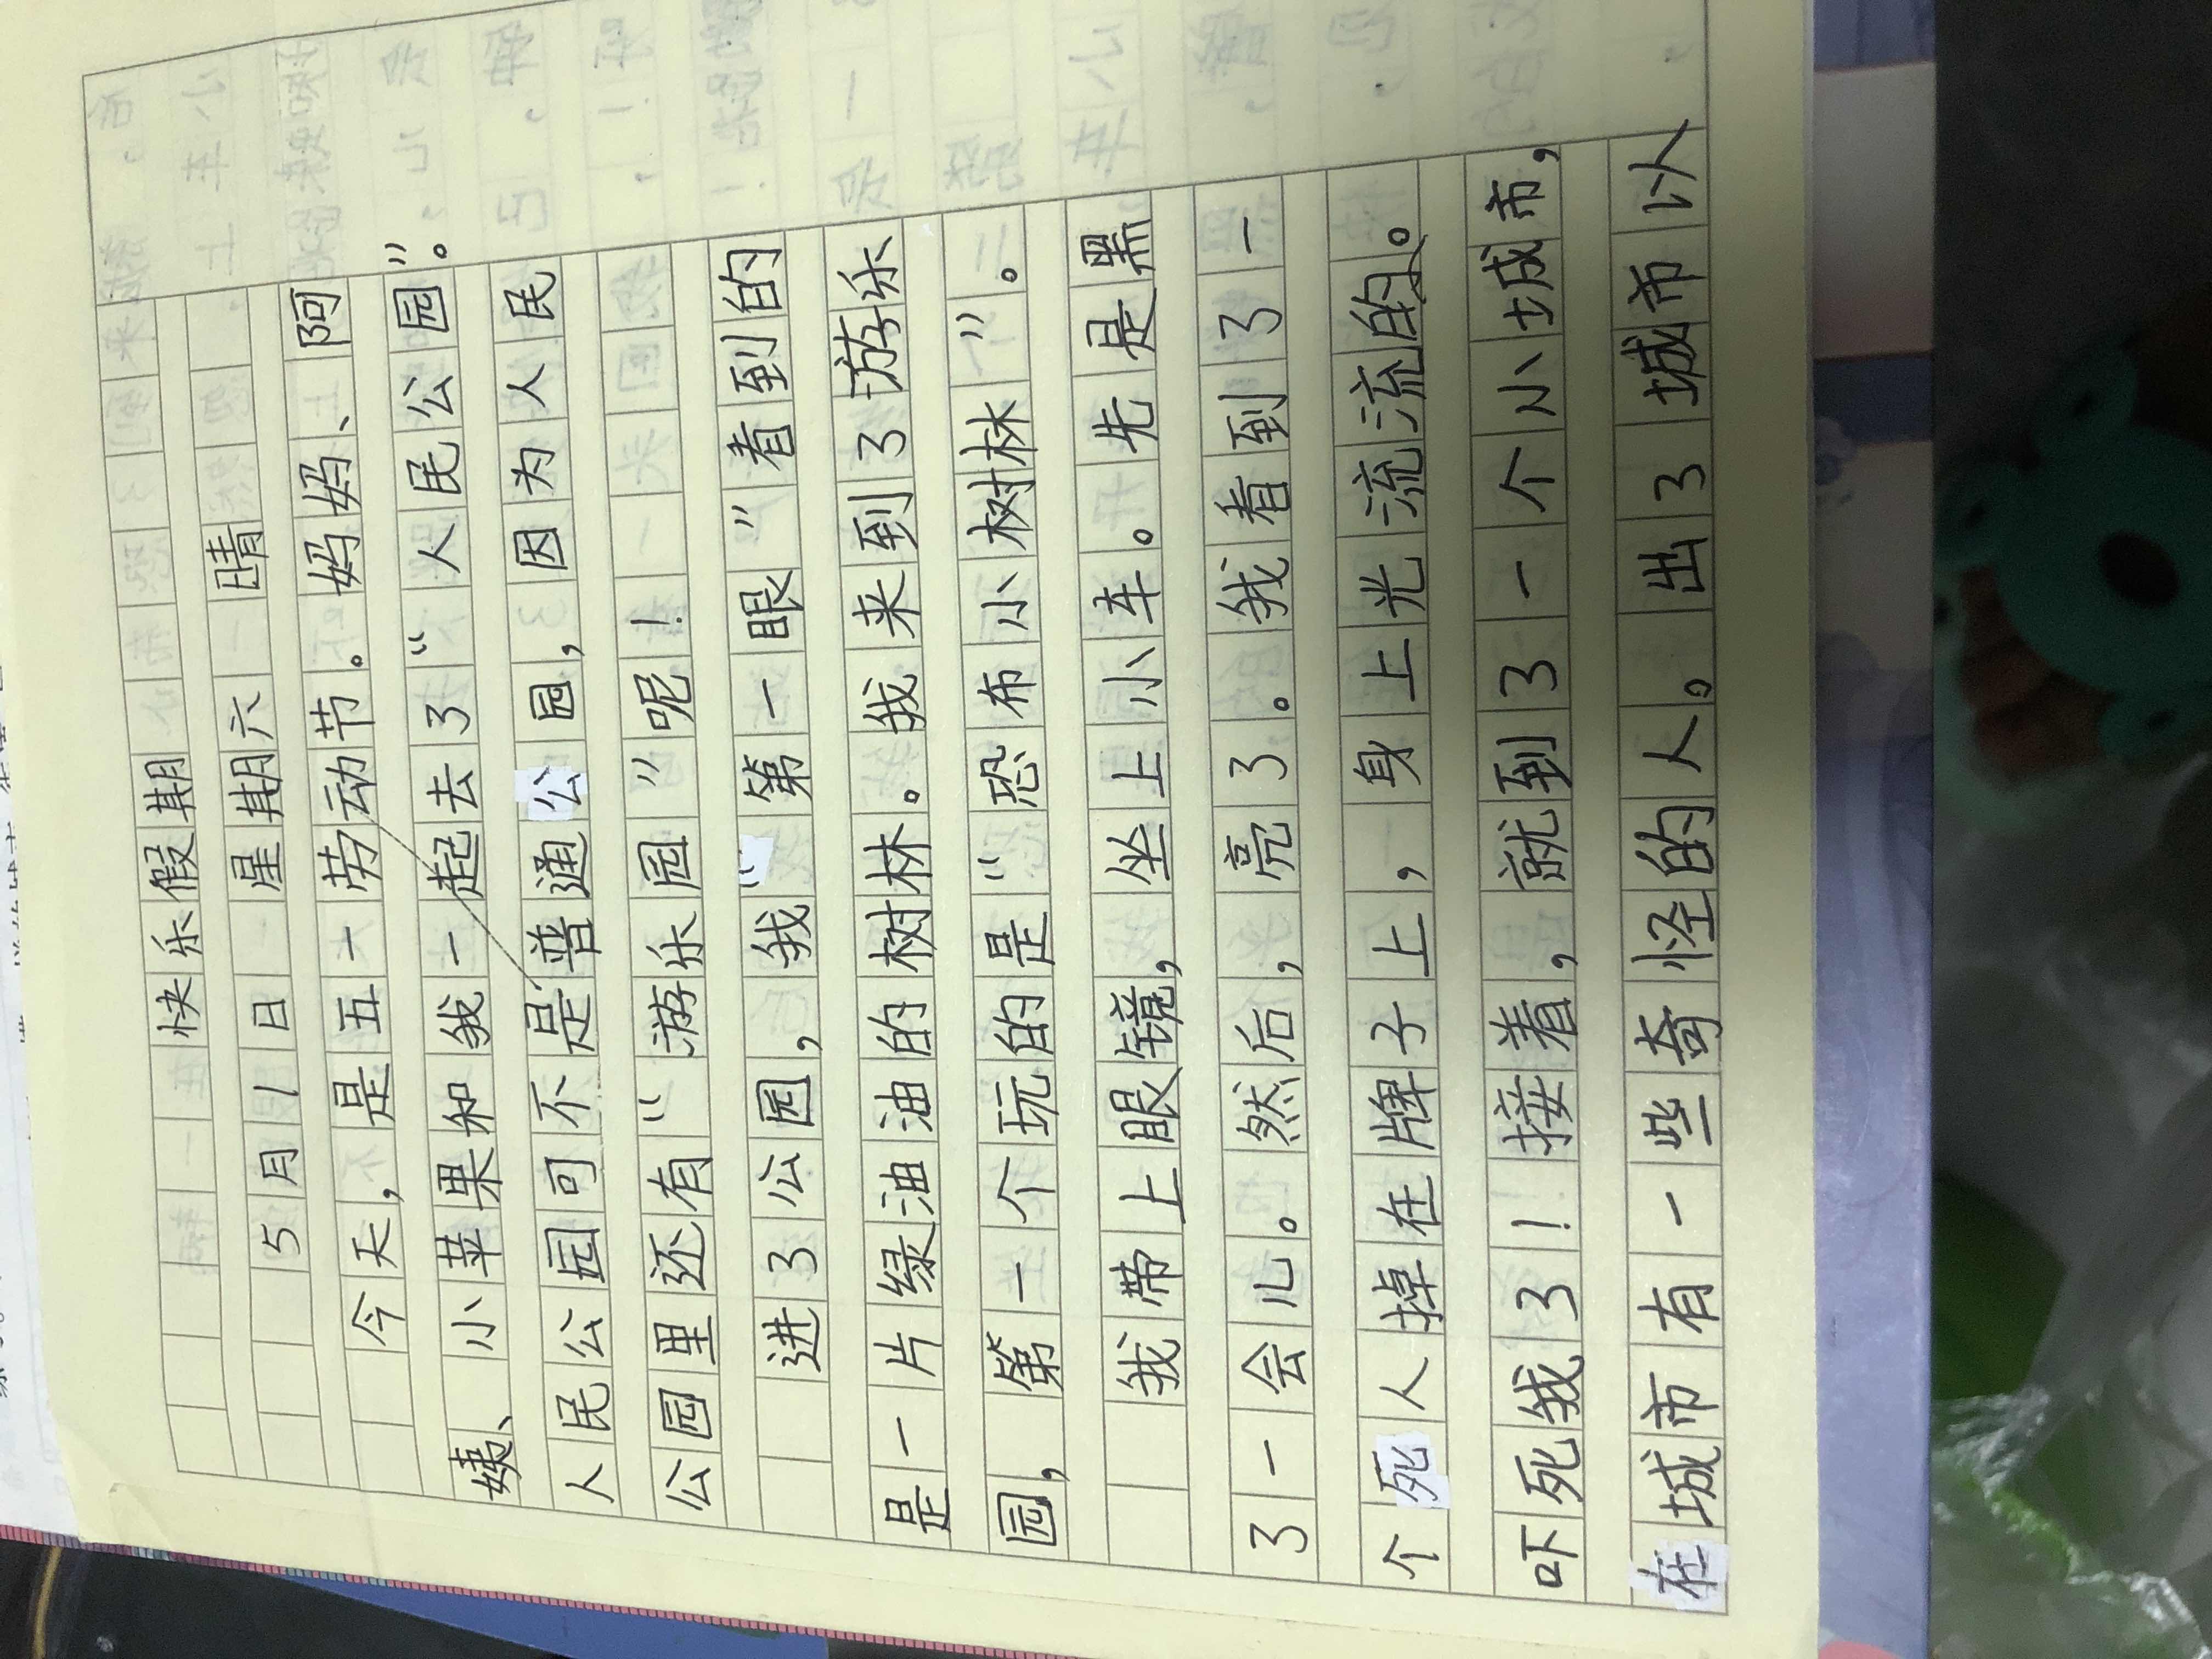 快乐假期
5月1日 星期六 晴
今天，是五一劳动节。妈妈、阿
姨、小苹果和我一起去了“人民公园”。
人民公园可不是普通公园，因为人民
公园里还有“游乐园”呢！
进了公园，我“第一眼”看到的
是一片绿油油的树林。我来到了游乐
园，第一个玩的是“恐布小树林”。
我带上眼镜，坐上小车。先是黑
了一会儿。然后，亮了。我看到了一
个死人掉在牌子上，身上光流流的。
吓死我了！接着，就到了一个小城市，
在城市有一些奇怪的人。出了城市以